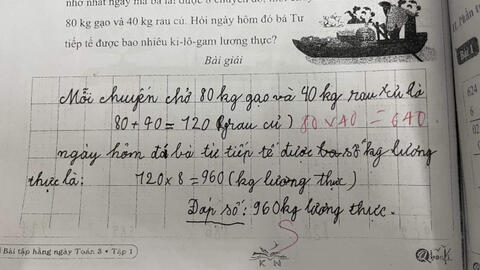 nhờ nhất ngày má ba lái được 8 chuyến đò, mỗi ch
80 kg gạo và 40 kg rau củ. Hỏi ngày hôm đó bà Tư
tiếp tế được bao nhiêu ki-lô-gam lương thực?
Bài giải
Mỗi chuyến chở 80 kg gạo và 40 kg rau củ là
80 + 40 = 120 (rau củ) 80 x 40 = 640
ngày hôm đó bà tư tiếp tế được số kg lương
thực là: 120 x 8 = 960 (kg lương thực)
Đáp số: 960 kg lương thực.
S
Bài tập hằng ngày Toán 3 • Tập 1
K N
II. Phần t
Bài 1
624
6
02
0